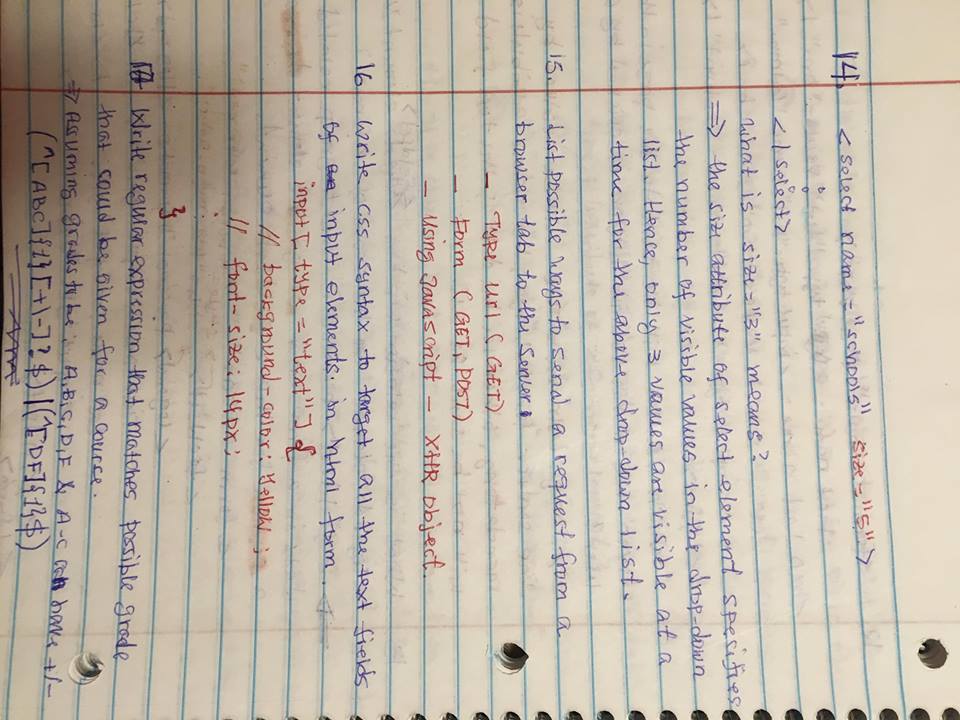 14) <select name="schools" size="5">
:
</select>
What is size="3" means?
=> the size attribute of select element specifies
the number of visible values in the drop-down
list. Hence, only 3 values are visible at a
time for the above drop-down list.
15. List possible ways to send a request from a
browser tab to the server.
- Type url (GET)
- Form (GET, POST)
- Using Javascript - XHR object.
16 Write css syntax to target all the text fields
of input elements. in html form.
input[type="text"] {
// background-color: yellow;
// font-size: 14px;
:
}
17 Write regular expression that matches possible grade
that could be given for a course.
=> Assuming grades to be: A,B,C,D,F & A-C can have +/-
(^[ABC]{1}[+\-]?$)|(^[DF]{1}$)